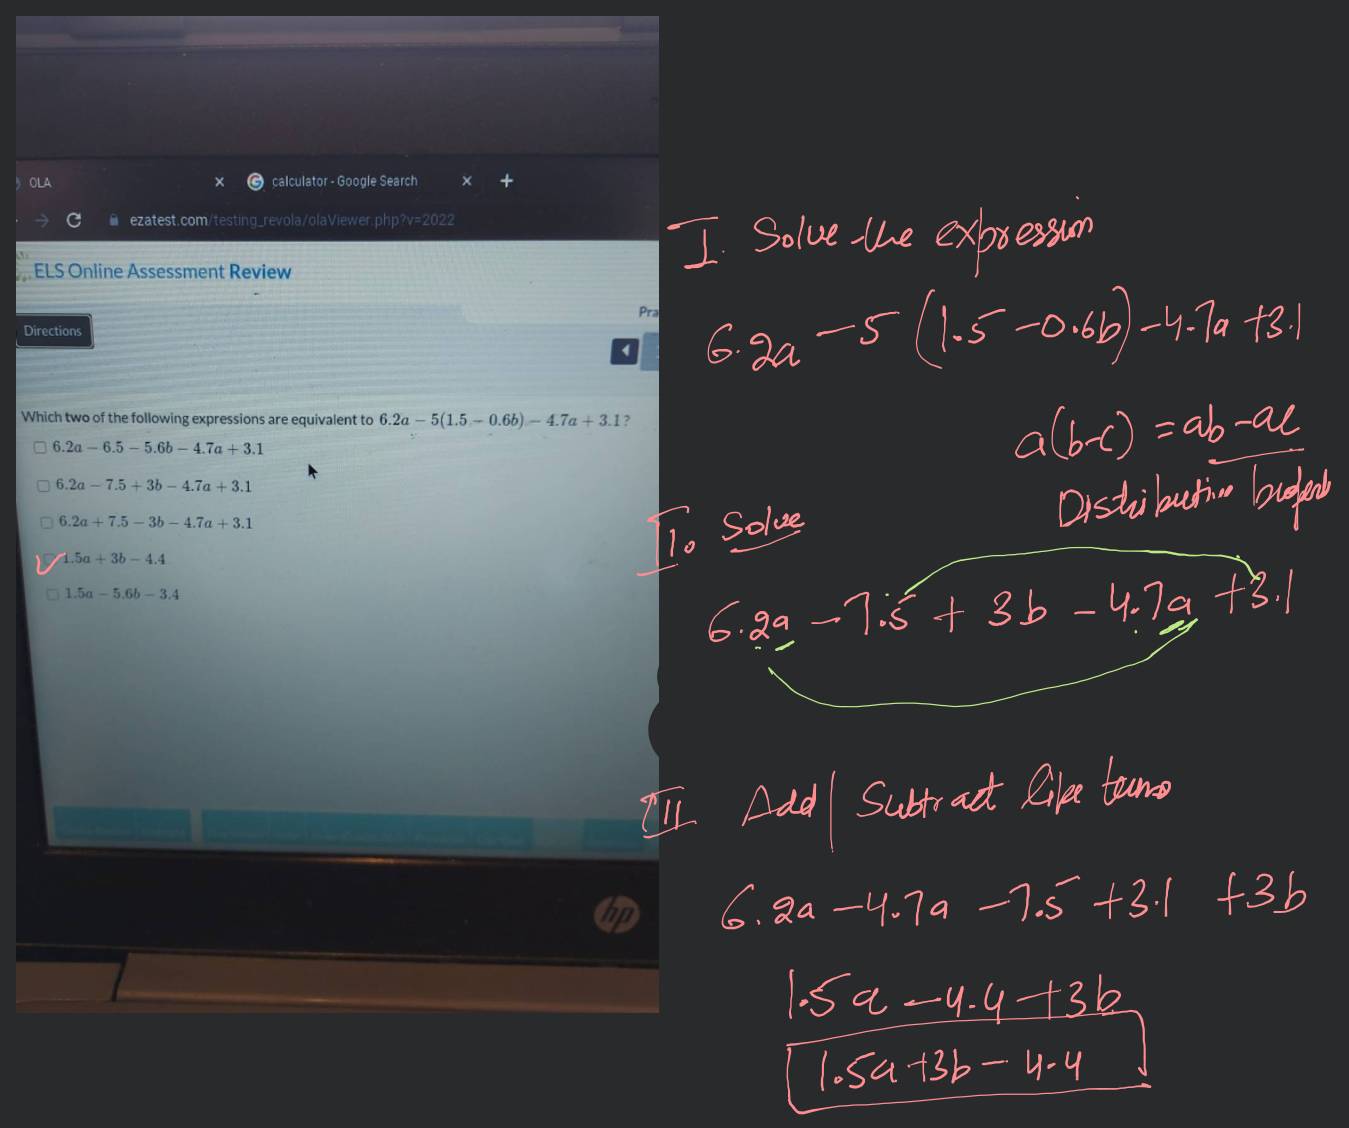 OLA
calculator - Google Search
ezatest.com/testing_revola/olaViewer.php?v=2022
ELS Online Assessment Review
Pra
Directions
Which two of the following expressions are equivalent to 6.2a − 5(1.5 − 0.6b) − 4.7a + 3.1?
6.2a − 6.5 − 5.6b − 4.7a + 3.1
6.2a − 7.5 + 3b − 4.7a + 3.1
6.2a + 7.5 − 3b − 4.7a + 3.1
1.5a + 3b − 4.4
1.5a − 5.6b − 3.4
hp
I. Solve the expression
6.2a − 5 (1.5 − 0.6b) − 4.7a + 3.1
a(b-c) = ab - ac
Distributive
II. Solve
6.2a − 7.5 + 3b − 4.7a + 3.1
III Add / Subtract like terms
6.2a − 4.7a − 7.5 + 3.1 + 3b
1.5a − 4.4 + 3b
1.5a + 3b − 4.4